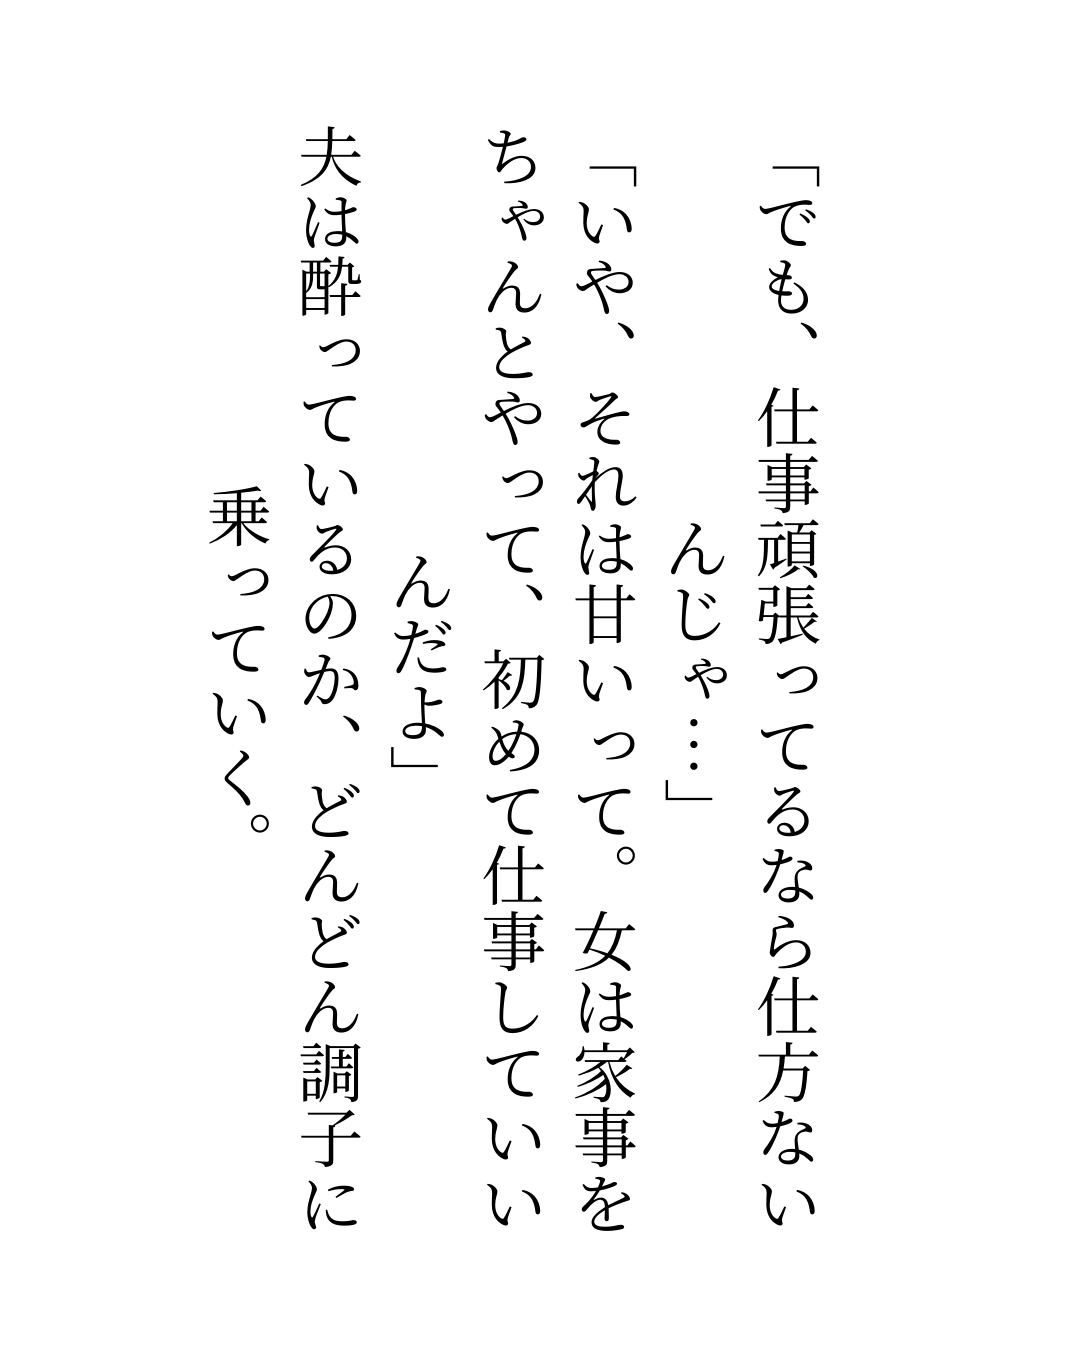 「でも、仕事頑張ってるなら仕方ない
んじゃ…」
「いや、それは甘いって。女は家事を
ちゃんとやって、初めて仕事していい
んだよ」
夫は酔っているのか、どんどん調子に
乗っていく。